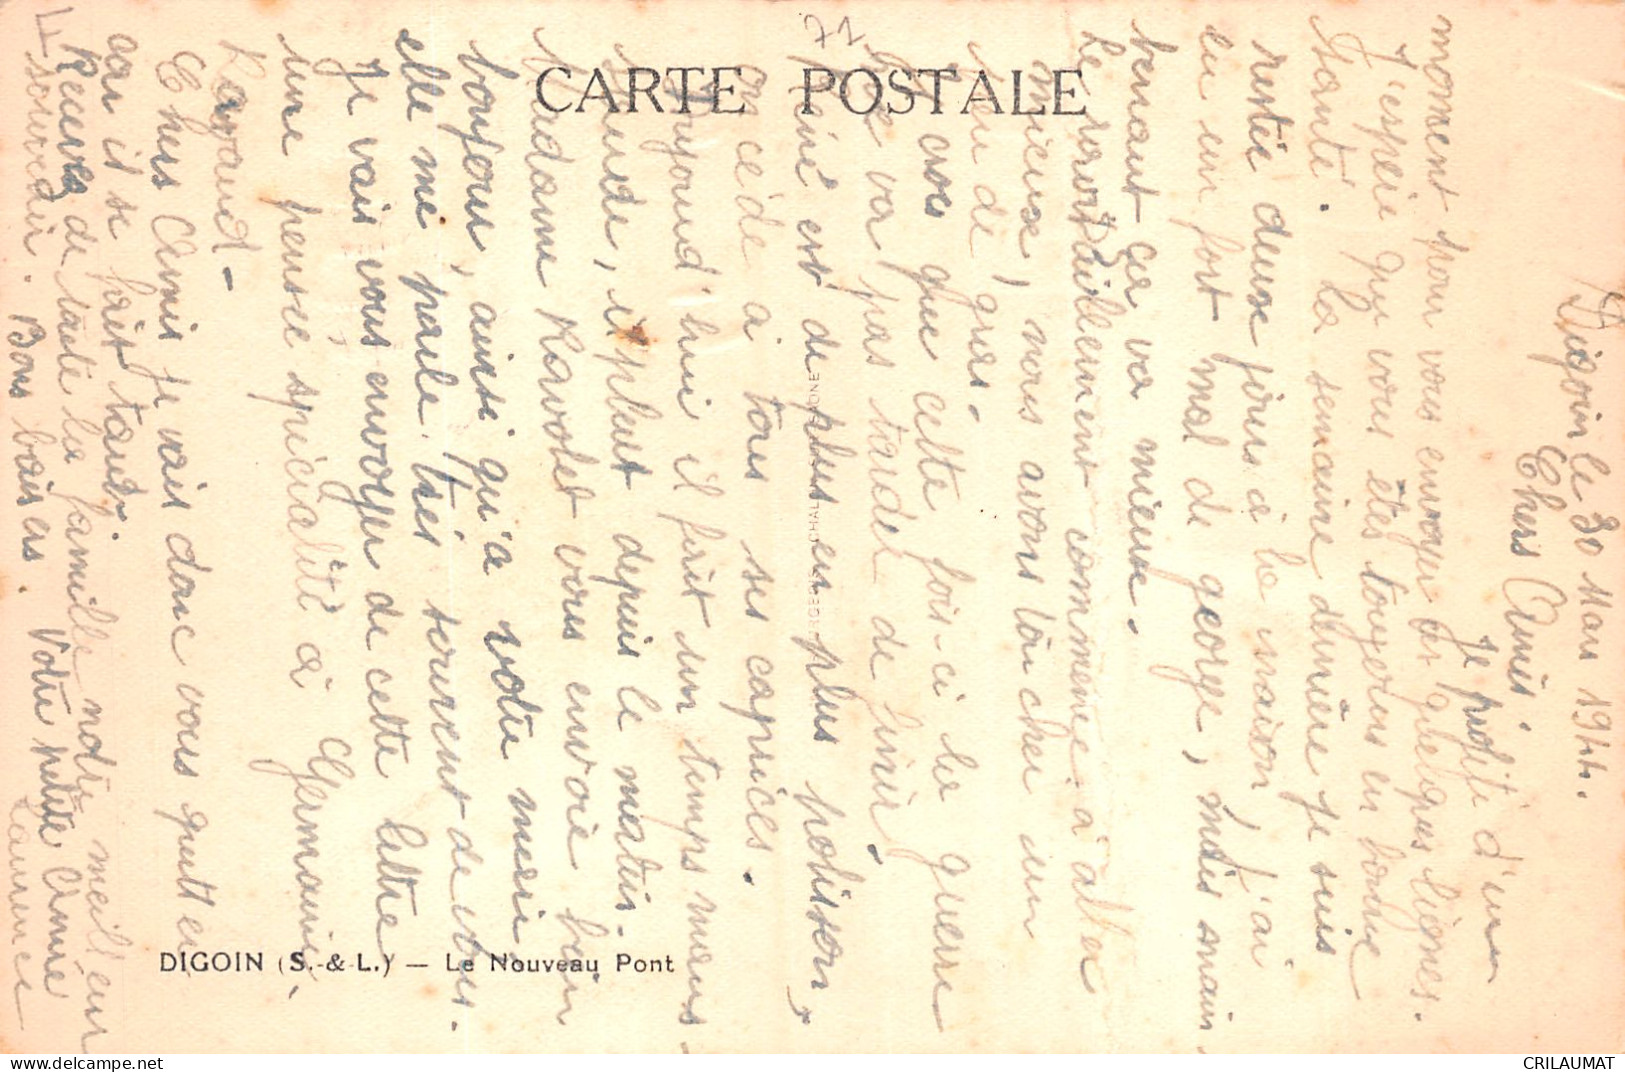 71
CARTE POSTALE
DIGOIN (S.-&-L.) — Le Nouveau Pont
Digoin le 30 Mars 1944.
Chers Amis.
Je profite d'un
moment pour vous envoyer ces quelques lignes.
J'espère que vous êtes toujours en bonne
Santé. La semaine dernière je suis
restée deux jours à la maison, j'ai
eu un fort mal de gorge, mais main
tenant ça va mieux.
Le ravitaillement commence à aller
mieux, nous avons touché un
peu de gras.
Je crois que cette fois-ci la guerre
ne va pas tarder de finir.
est de plus en plus polisson,
on cède à tous ses caprices.
Aujourd'hui il fait un temps maus
sade, il pleut depuis le matin.
Madame Ravolet vous envoie bien
bonjour, ainsi qu'à votre mari
elle me parle très souvent de vous.
Je vais vous envoyer de cette lettre
une pensée spécialité à Germaine,
Raymond-
Chers Amis je vais donc vous quitter
car il se fait tard.
Recevez de toute la famille notre meilleur
souvenir. Bons baisers. Votre petite Amie
Laurence
CRILAUMAT